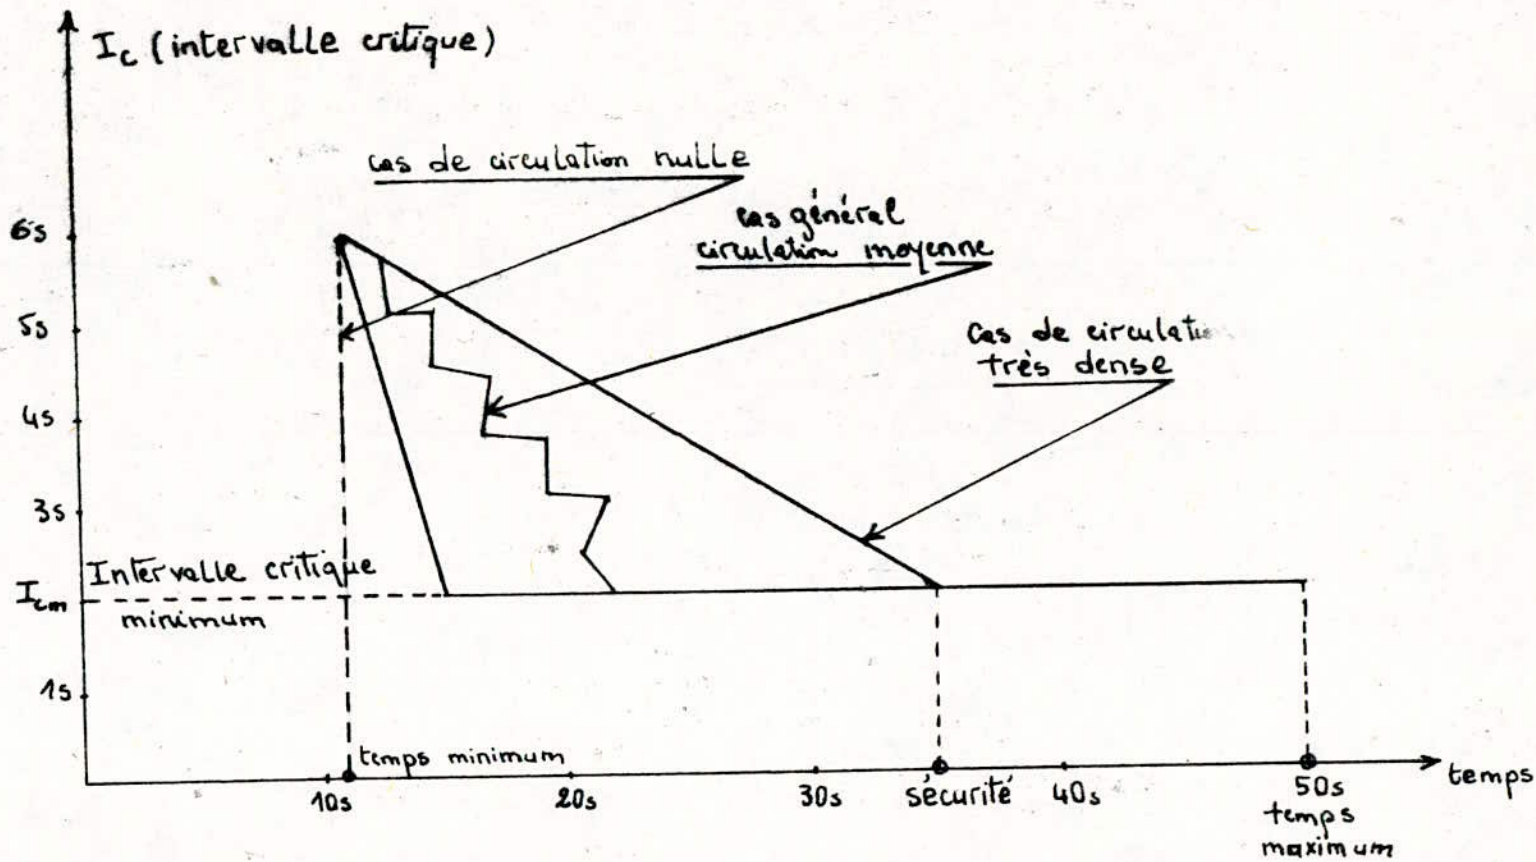 Ic (intervalle critique)
cas de circulation nulle
cas général
circulation moyenne
cas de circulati
très dense
6s
5s
4s
3s
Intervalle critique
Icm
minimum
1s
temps minimum
10s
20s
30s
sécurité
40s
50s
temps
temps
maximum